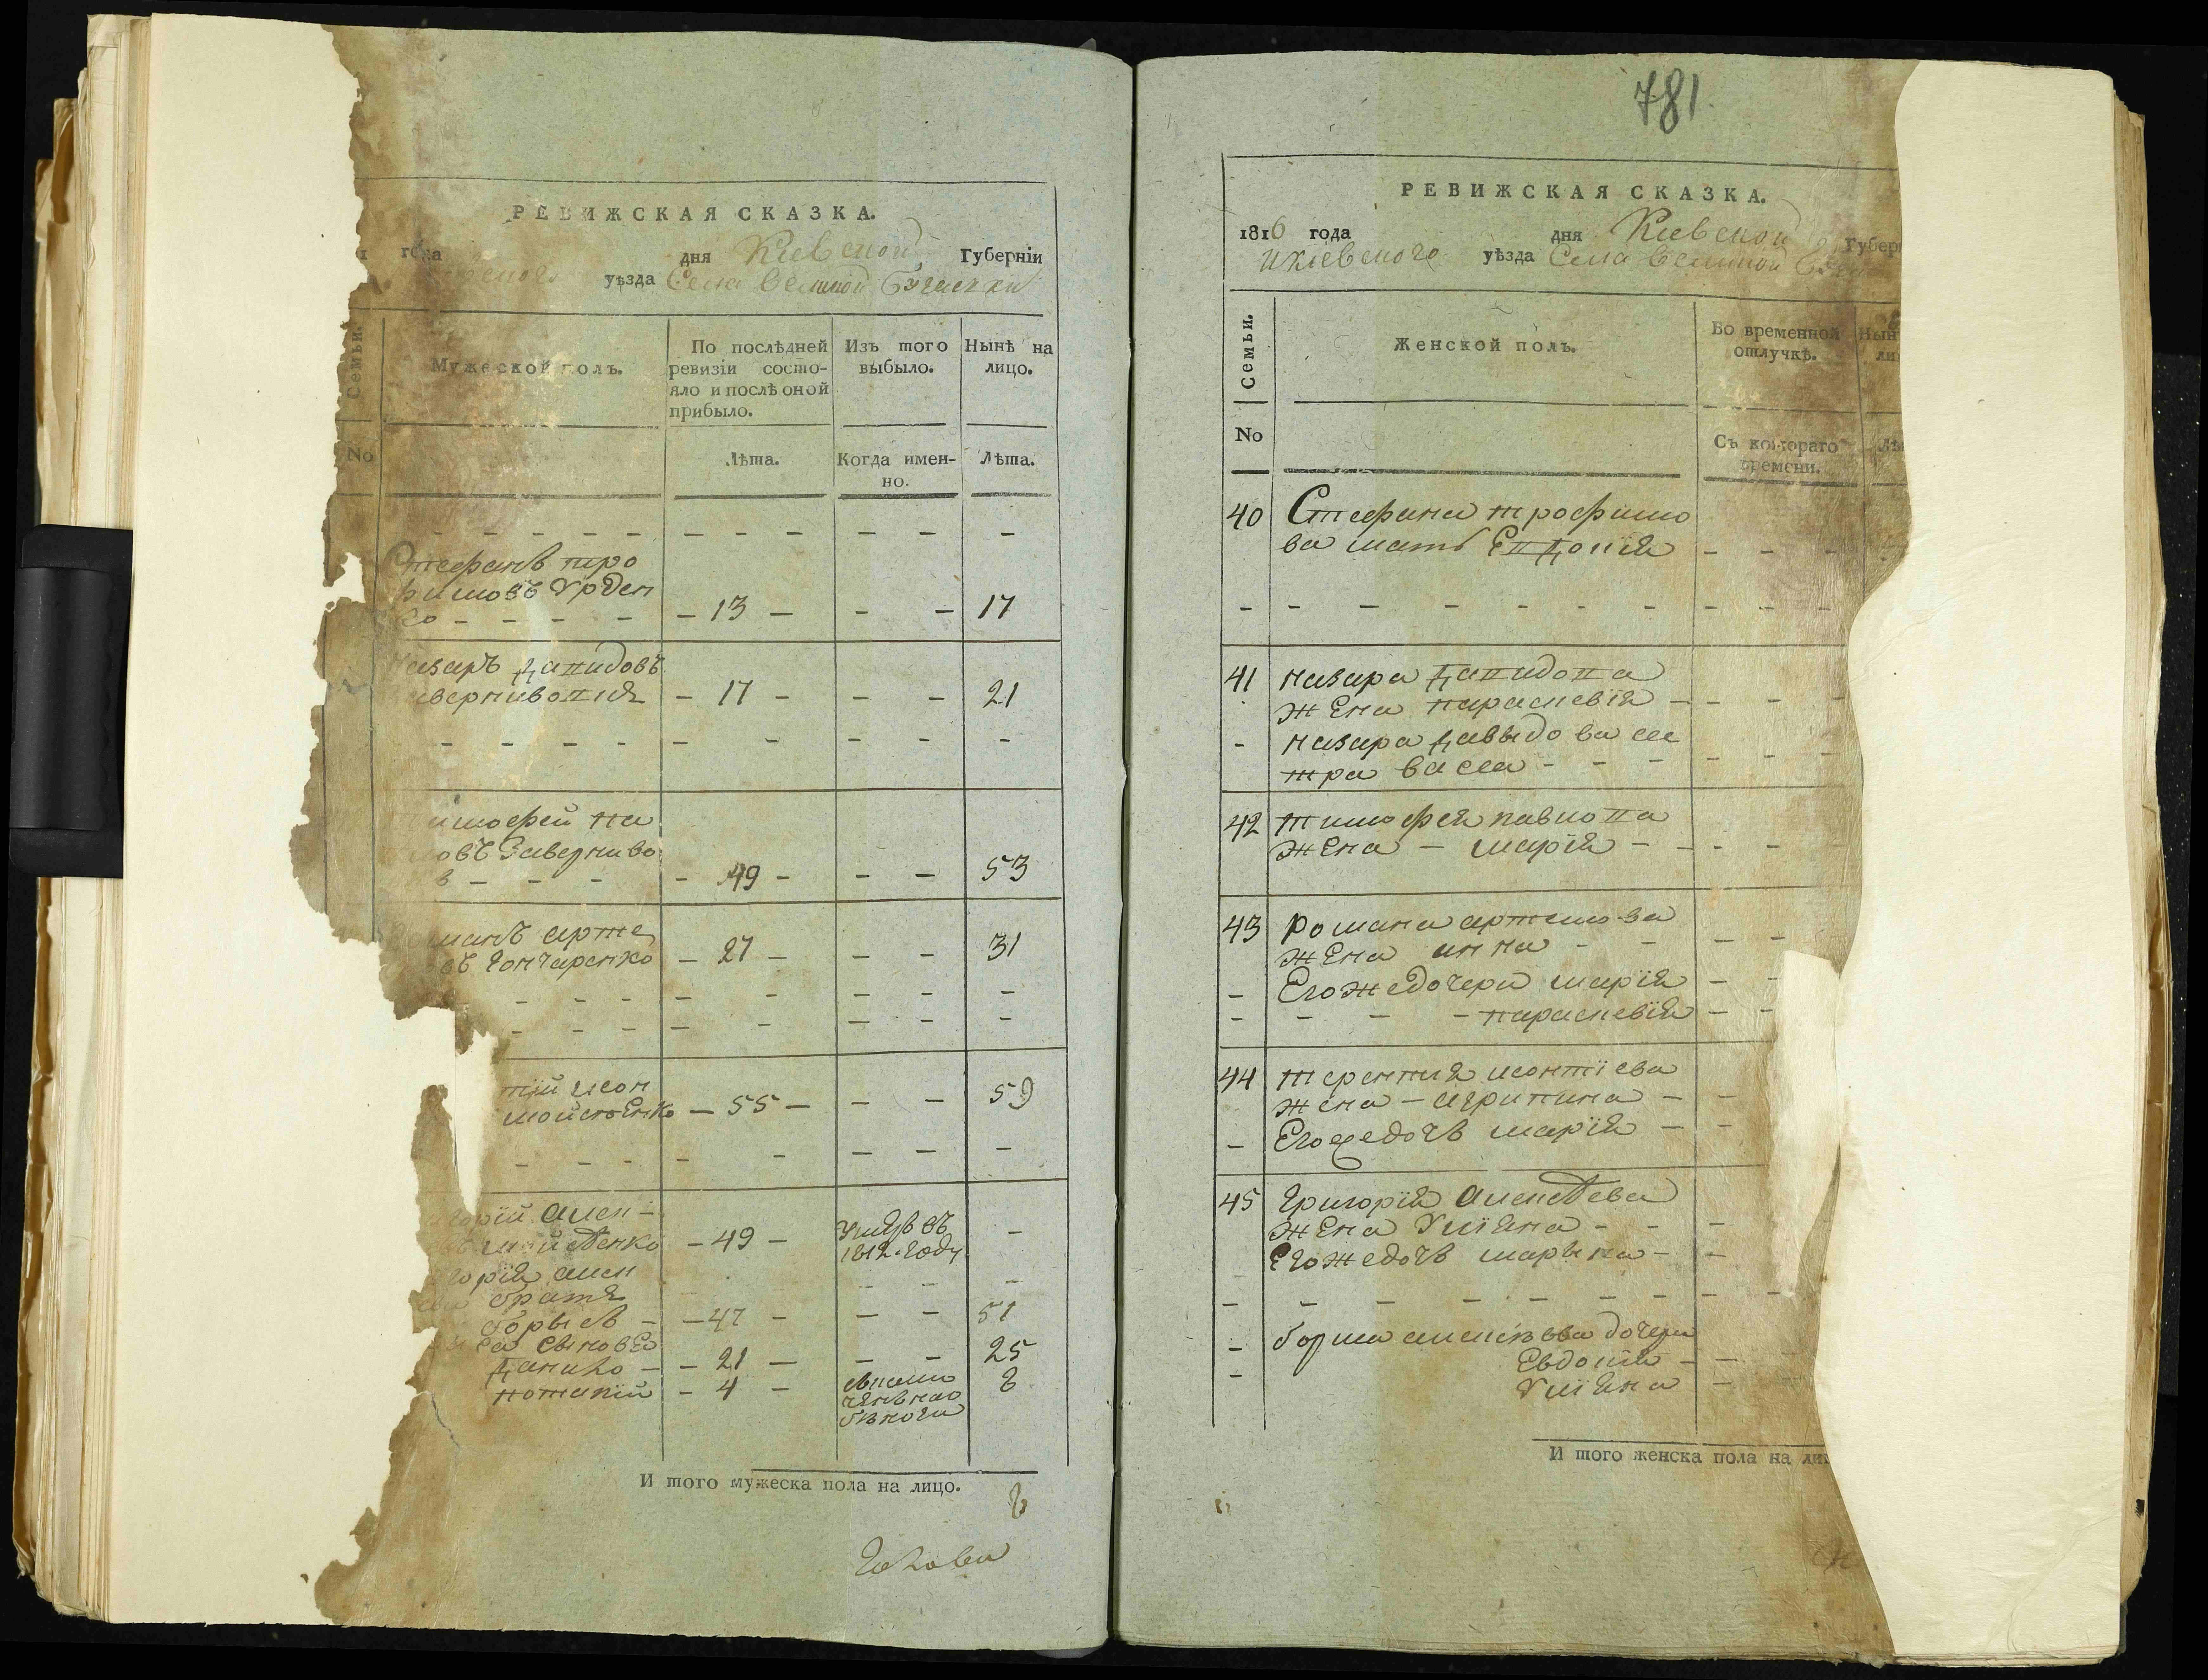 РЕВИЖСКАЯ СКАЗКА.
года дня Киевской Губерніи
уѣзда Села великой
Семьи.
Мужеской полъ.
По послѣдней ревизіи состо-
яло и послѣ оной
прибыло.
Изъ того
выбыло.
Нынѣ на
лицо.
No
Лѣта.
Когда имен-
но.
Лѣта.
Стефанъ тро
фимовъ Урден
ко - 13 - - - 17
Назаръ давидовъ
- 17 - - - 21
тимофей па
овъ Заверниво
- 49 - - - 53
романъ арте
овъ Гончаренко - 27 - - - 31
тій леон
мойсѣенко - 55 - - - 59
горій алек-
мойсѣенко - 49 - умре въ
1812 году -
горія алек
братъ
борысъ - 47 - - - 51
сыновья
данило - 21 - - - 25
потапій - 4 - 8
И того мужеска пола на лицо. 8
Голова
781.
РЕВИЖСКАЯ СКАЗКА.
1816 года дня Киевской Губер
Икіевского уѣзда Села великой
Семьи.
Женской полъ.
Во временной
отлучкѣ.
Нын
ли
No
Съ котораго
времени.
Лѣ
40 Стефана трофимо
ва мать Евдокія
41 назара давидова
жена параскевія
назара давыдова сес
тра васса
42 тимофея павлова
жена - марія
43 романа артемова
жена анна
Его же дочери марія
параскевія
44 терентия леонтіева
жена - агрипина
Его же дочь марія
45 григорія алексѣева
жена Уліяна
Его же дочь марына
бориса алексѣева дочери
Евдокія
Уліяна
И того женска пола на ли